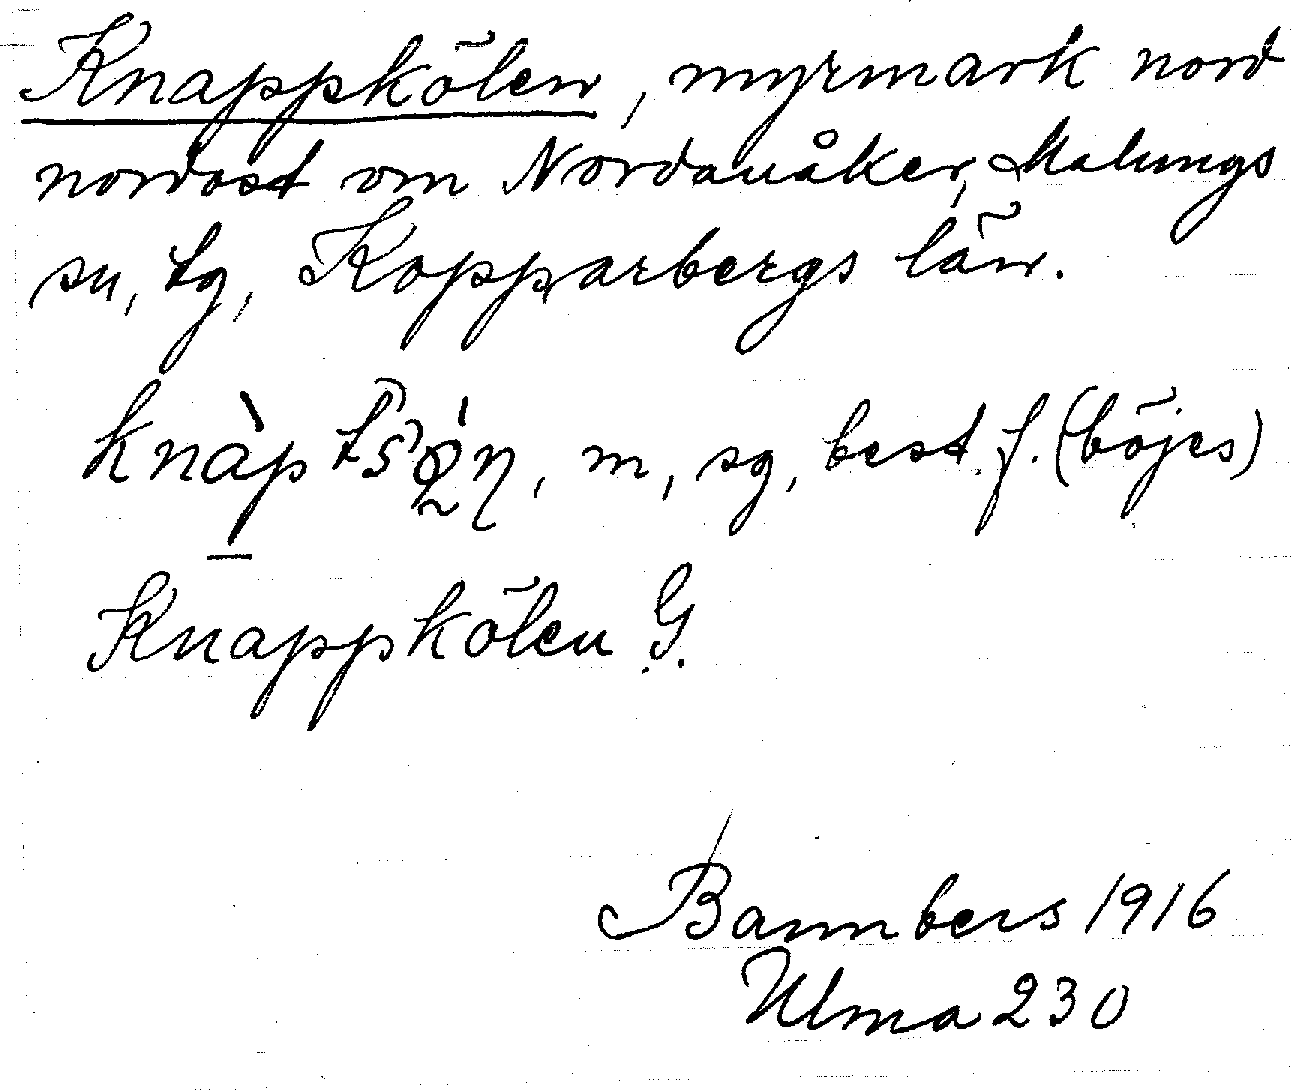 Knappkölen, myrmark nord
nordost om Nordanåker, Malungs
sn, tg, Kopparbergs län.
m, sg, best. f. (böjes)
Knappkölen G.
Bannbers 1916
Ulma 230